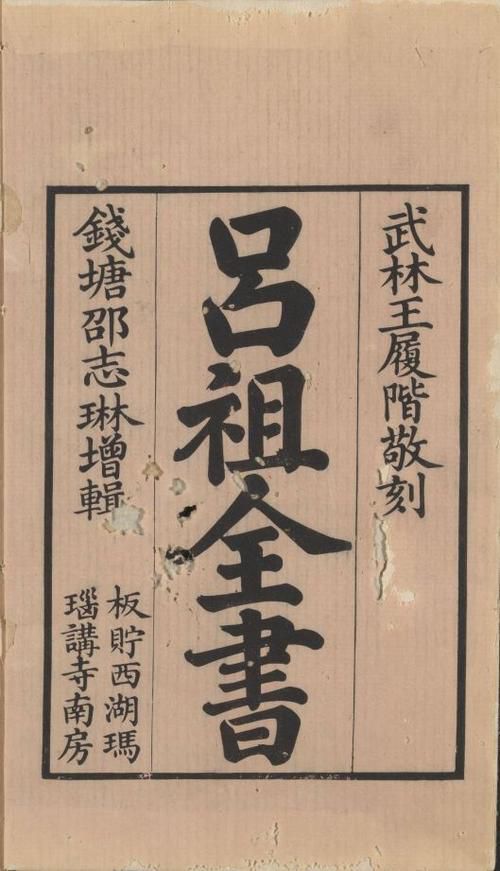 武林王履階敬刻
呂祖全書
錢塘邵志琳增輯
板貯西湖瑪
瑙講寺南房